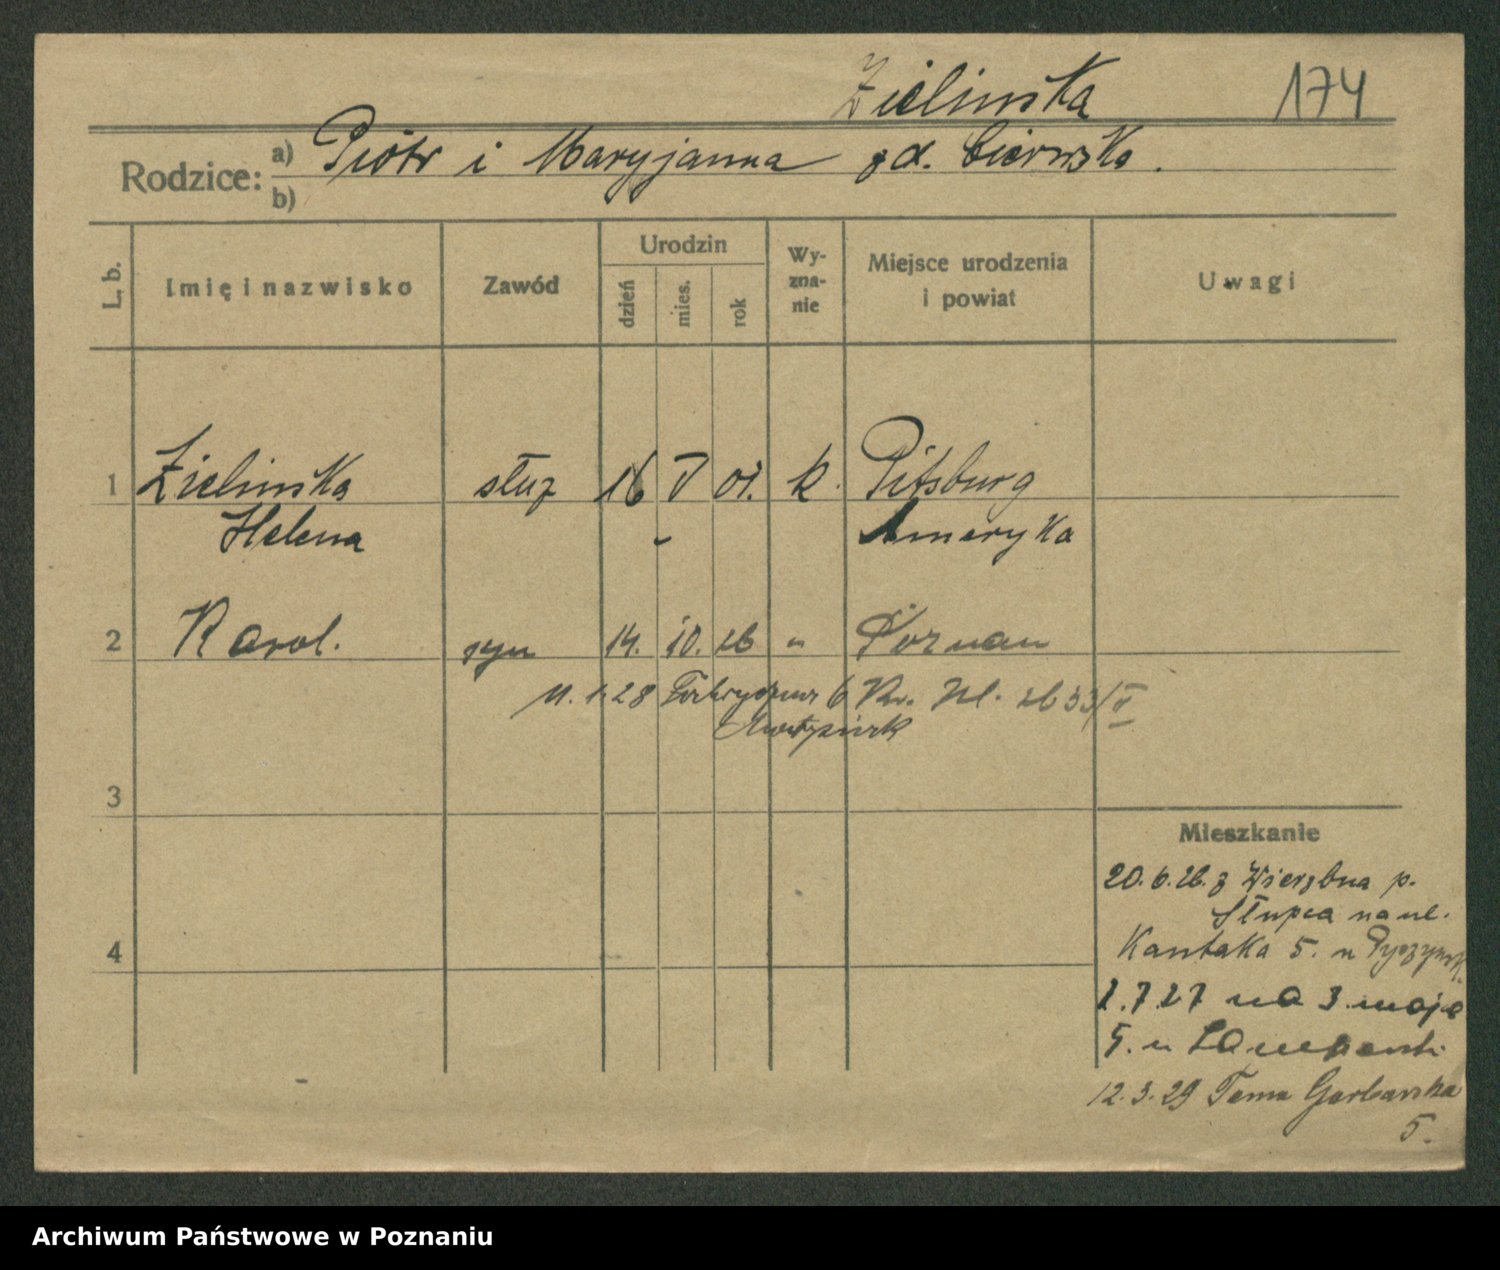 Zielinska 174
Rodzice: a) Piotr i Maryjanna zd. Cierwska.
b)
L. b.
Imię i nazwisko
Zawód
Urodzin
dzień
mies.
rok
Wy-
zna-
nie
Miejsce urodzenia
i powiat
Uwagi
1 Zielinska służ 16 V 01. k. Pitsburg
Helena - Ameryka
2 Karol. syn 14. 10. 26 " Poznan
11. 1. 28 6 33/II
3
4
Mieszkanie
20.6.26. z Wierzbna p.
Słupca na ul.
Kantaka 5. u
1.7.27 na 3. maja
5. u
12.3.29 Tama Garbarska
5.
Archiwum Państwowe w Poznaniu